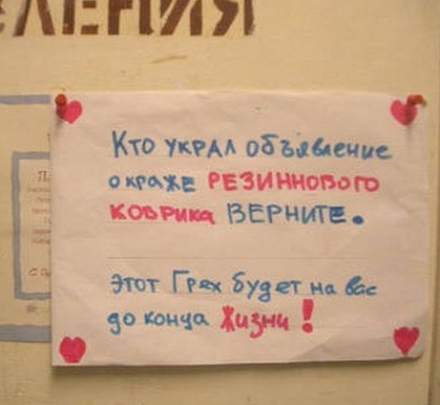 ЛЕНИЯ
Кто украл объявление
о краже РЕЗИННОВОГО
КОВРИКА ВЕРНИТЕ.
Этот Грех будет на вас
до конца Жизни!